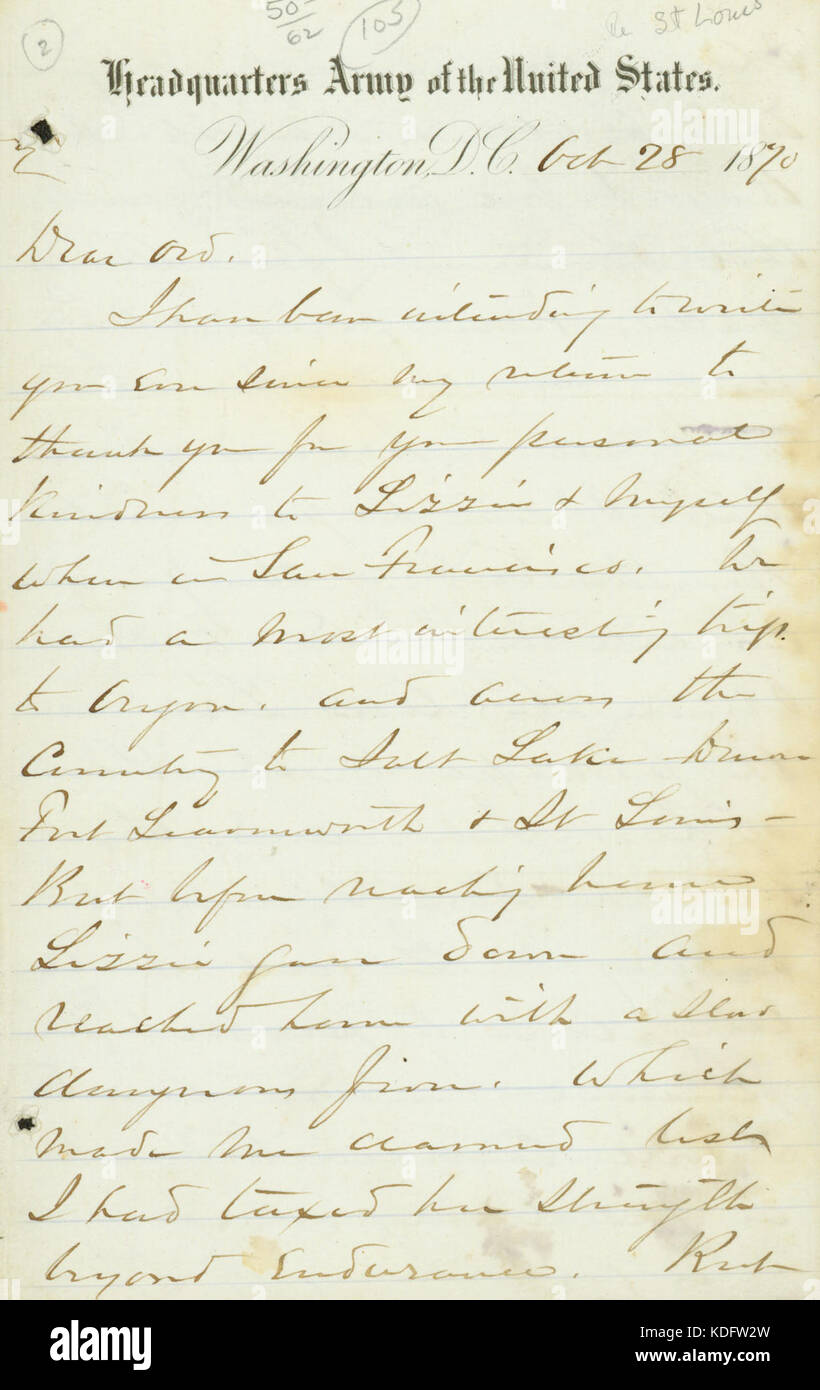 2
50
62
105
Re St Louis
Headquarters Army of the United States.
Washington, D.C. Oct 28 1870
Dear Ord.
I have been intending to write
you ever since my return to
thank you for your personal
kindness to Lizzie & myself
when in San Francisco. We
had a most interesting trip
to Oregon. and across the
Country to Salt Lake Denver
Fort Leavenworth & St Louis -
But before reaching home
Lizzie gave down and
reached home with a slow
dangerous fever. which
made me alarmed lest
I had taxed her strength
beyond Endurance. But
alamy
alamy stock photo
KDFW2W
www.alamy.com